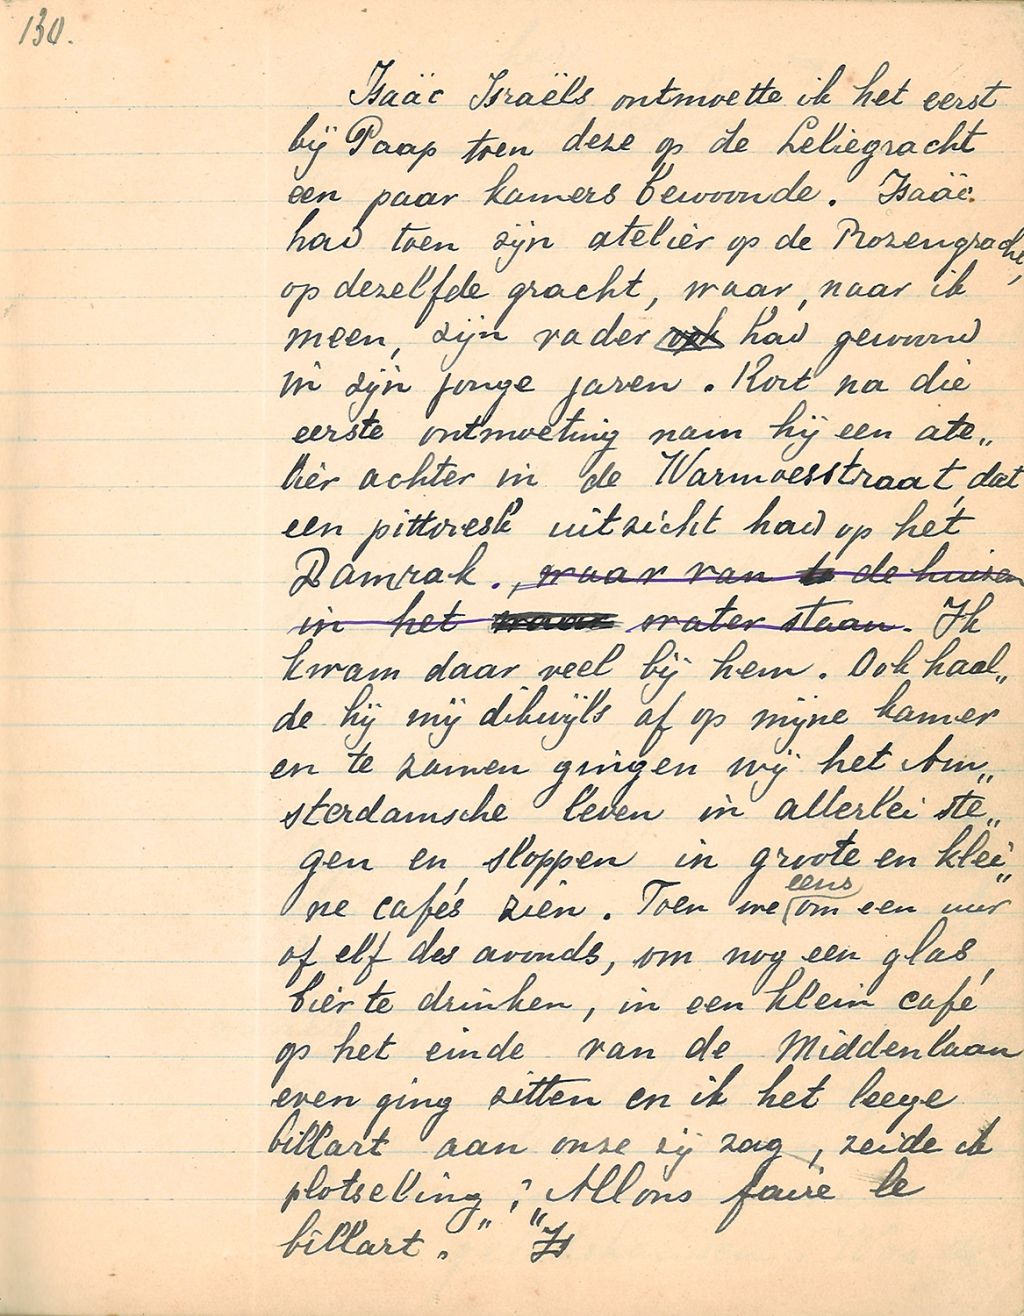 130.
Isaäc Israëls ontmoette ik het eerst
bij Paap toen deze op de Leliegracht
een paar kamers bewoonde. Isaäc
had toen zijn atelier op de Rozengracht,
op dezelfde gracht, waar, naar ik
meen, zijn vader ook had gewoond
in zijn jonge jaren. Kort na die
eerste ontmoeting nam hij een ate„
lier achter in de Warmoesstraat, dat
een pittoresk uitzicht had op het
Damrak., waar van de huizen
in het water staan. Ik
kwam daar veel bij hem. Ook haal„
de hij mij dikwijls af op mijne kamer
en te zamen gingen wij het Am„
sterdamsche leven in allerlei ste„
gen en sloppen in groote en klei„
ne cafés zien. Toen we eens om een uur
of elf des avonds, om nog een glas
bier te drinken, in een klein café
op het einde van de Middenlaan
even ging zitten en ik het leege
billart aan onze zij zag, zeide ik
plotseling: „Allons faire le
billart." Is